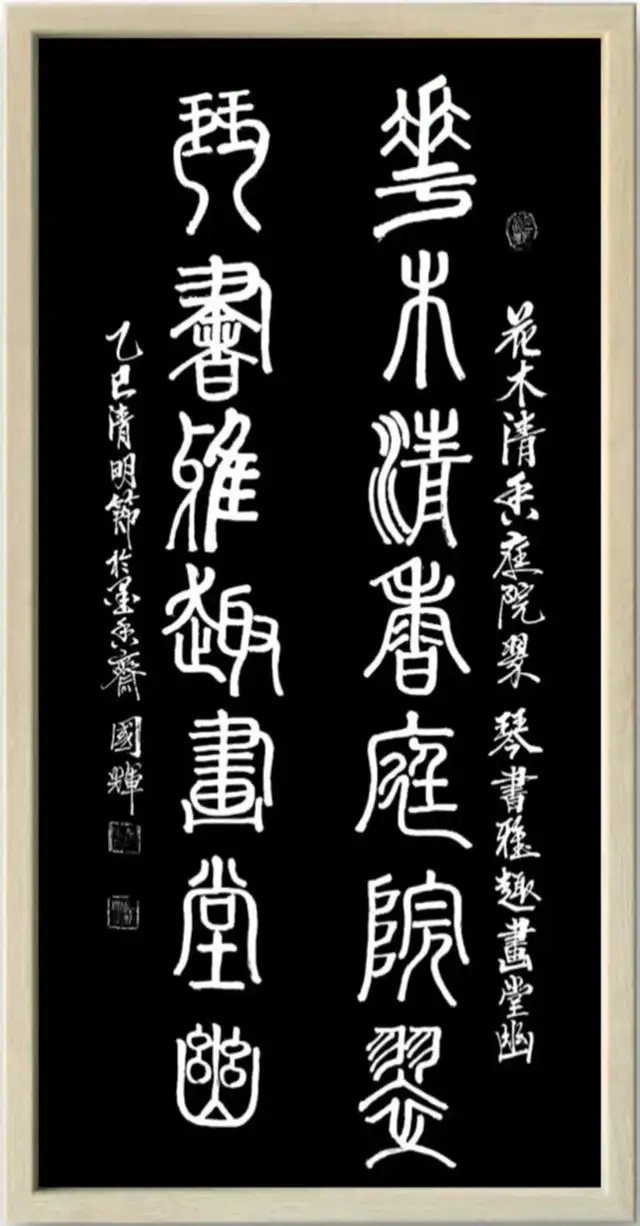 花木清香庭院翠 琴書雅趣畫堂幽
華木清香庭院翠
琴書雅趣畫堂幽
乙巳清明節於墨香齋 國輝